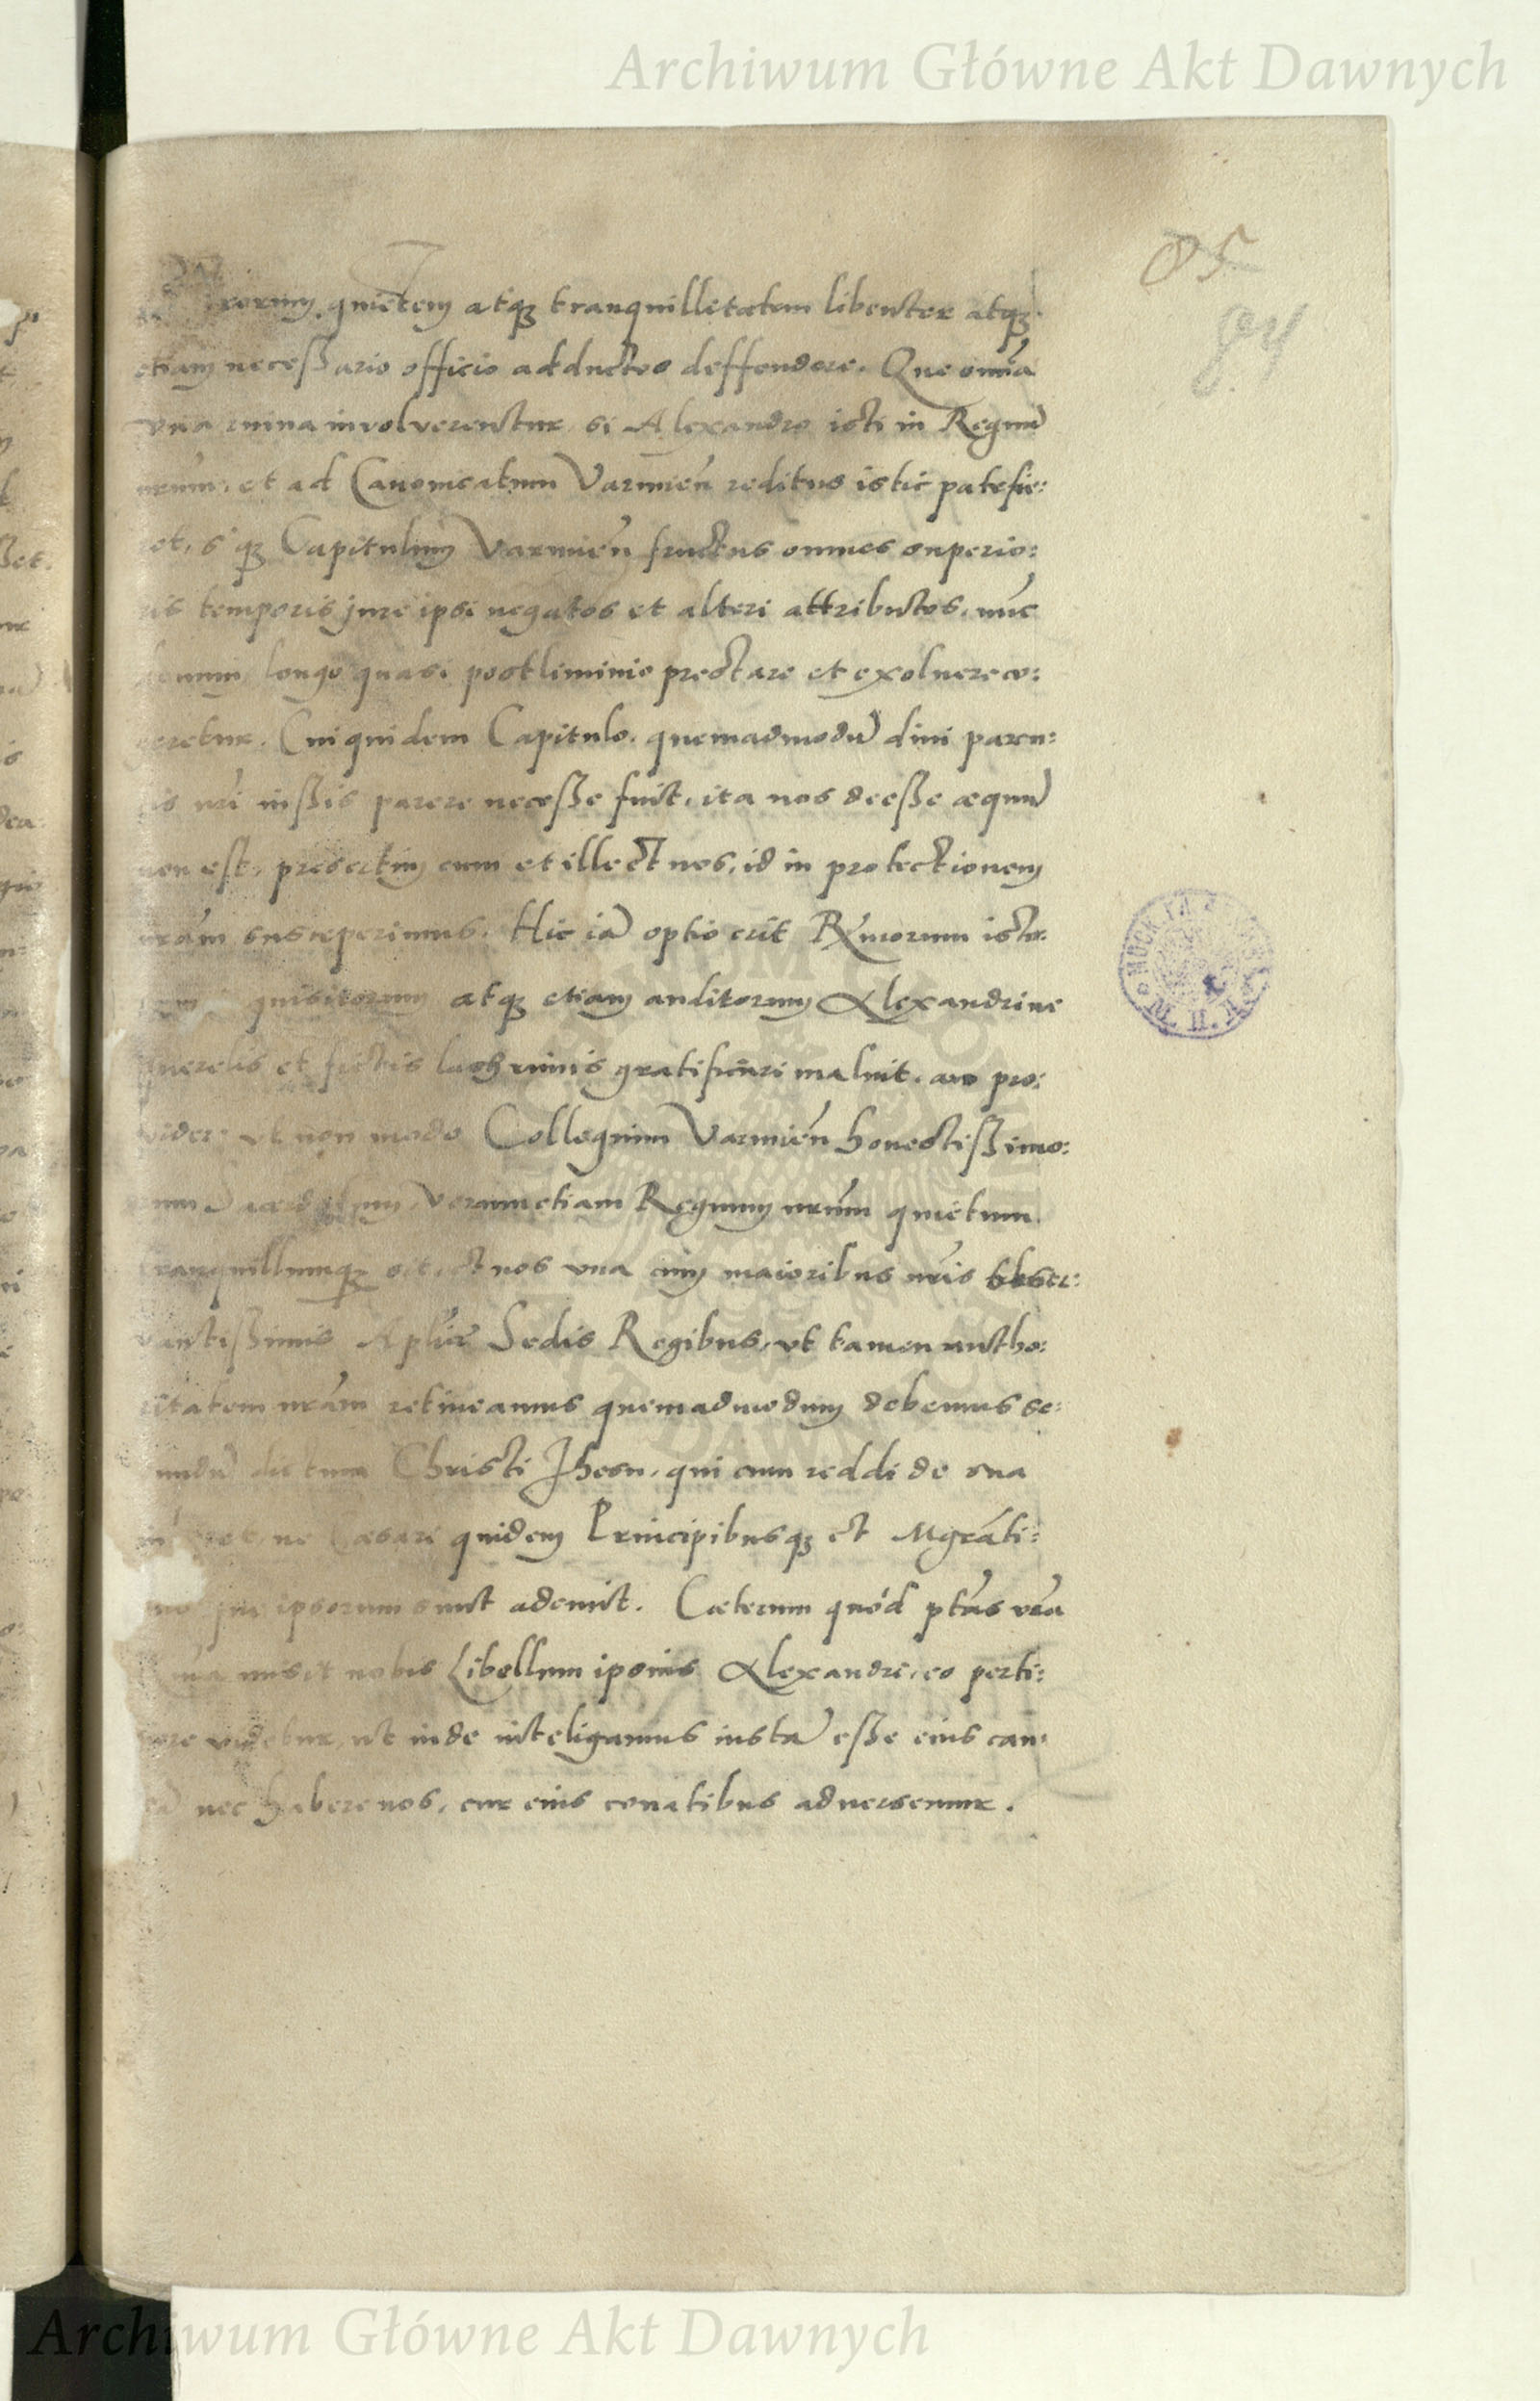 Archiwum Główne Akt Dawnych
85
84
quietem atq₃ tranquilletatem libenter atq₃
etiam necessario officio adductos deffendere. Que om̃ia
vna ruina involverentur si Alexandro isti in Regnũ
nr̃um, et ad Canonicatum Varmień reditus istic patefie:
ret, Capitulum Varmień fructus omnes superio:
ris temporis jure ipsi negatos et alteri attributos, nũc
demum longo quasi postliminio prestare et exoluere co:
geretur. Cui quidem Capitulo, quemadmodũ diui paren:
tis nr̃i iussis parere necesse fuit, ita nos deesse æquũ
non est, presertim cum et ille et nos, id in protectionem
nr̃am susceperimus. Hic iã optio erit Rx̃morum isto:
quisitorum atq₃ etiam auditorum Alexandrine
querelis et fictis lachrimis gratificari maluit, an pro:
videre vt non modo Collegium Varmień honestissimo:
verum etiam Regnum nr̃um quietum
tranquillumq₃ sit, et nos vna cum maioribus nr̃is obser:
vantissimis Apl̃ice Sedis Regibus, vt tamen autho:
ritatem nr̃am retineamus quemadmodum debemus se:
cundũ dictum Christi Jhesu, qui cum reddi de sua
ne Cæsari quidem Principibusq₃ et Mgrãti:
jus ipsorum sunt ademit. Cæterum quód ptãs vr̃a
misit nobis Libellum ipsius Alexandri, eo perti:
nere videtur, ut inde inteligamus iustã esse eius cau:
sã nec habere nos, cur eius conatibus aduersemur.
Archiwum Główne Akt Dawnych